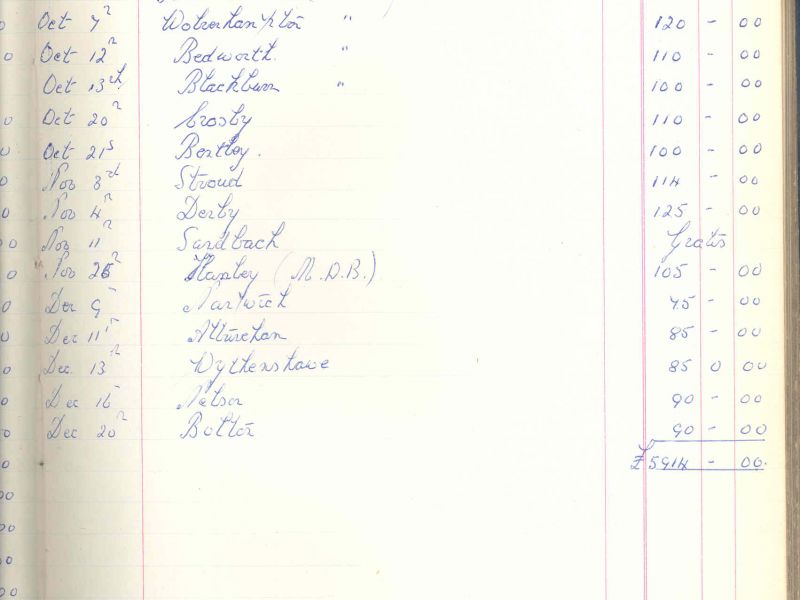 Oct 7 Wolverhampton " 120 - 00
0 Oct 12 Bedworth. " 110 - 00
Oct 13th Blackburn " 100 - 00
0 Oct 20 Crosby 110 - 00
0 Oct 21s Bentley. 100 - 00
0 Nov 3rd Stroud 114 - 00
0 Nov 4 Derby 125 - 00
00 Nov 11 Sandbach Gratis
0 Nov 25 (M.D.B.) 105 - 00
0 Dec 9 Nantwich 45 - 00
0 Dec 11 Altrincham 85 - 00
0 Dec. 13 Wythenshawe 85 0 00
0 Dec 16 Nelson 90 - 00
0 Dec 20 Bolton 90 - 00
0 £5914 - 00.
00
00
0
00